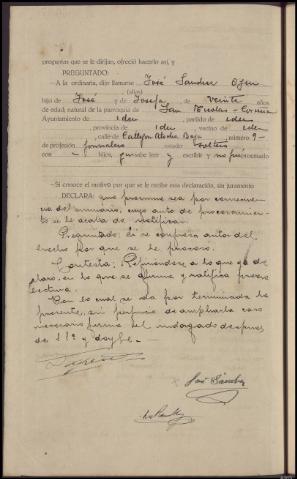 preguntas que se le dirijan, ofreció hacerlo así, y
PREGUNTADO:
A la ordinaria, dijo llamarse José Sanchez
(alias)
hijo de José y de Josefa de veinte años
de edad, natural de la parroquia de San Nicolas - Coruña
Ayuntamiento de idem partido de idem
, provincia de idem vecino de idem
, calle de Atocha Baja número 9 -
de profesión jornalero estado soltero
con - hijos, que sabe leer y escribir y no fué procesado
Si conoce el motivo por que se le recibe esta declaración, sin juramento
DECLARA: que presume sea por consecuen
cia del sumario, cuyo auto de procesamien
to se le acaba de notificar.
Preguntado: Si se confiesa autor del
hecho por que se le procesa.
Contesta: Que
se afirma y ratifica
Con lo cual se da por terminada la
presente, sin perjuicio de ampliarla caso
necesario firma el indagado despues
de S.Sª y doy fe. -
José Sánchez